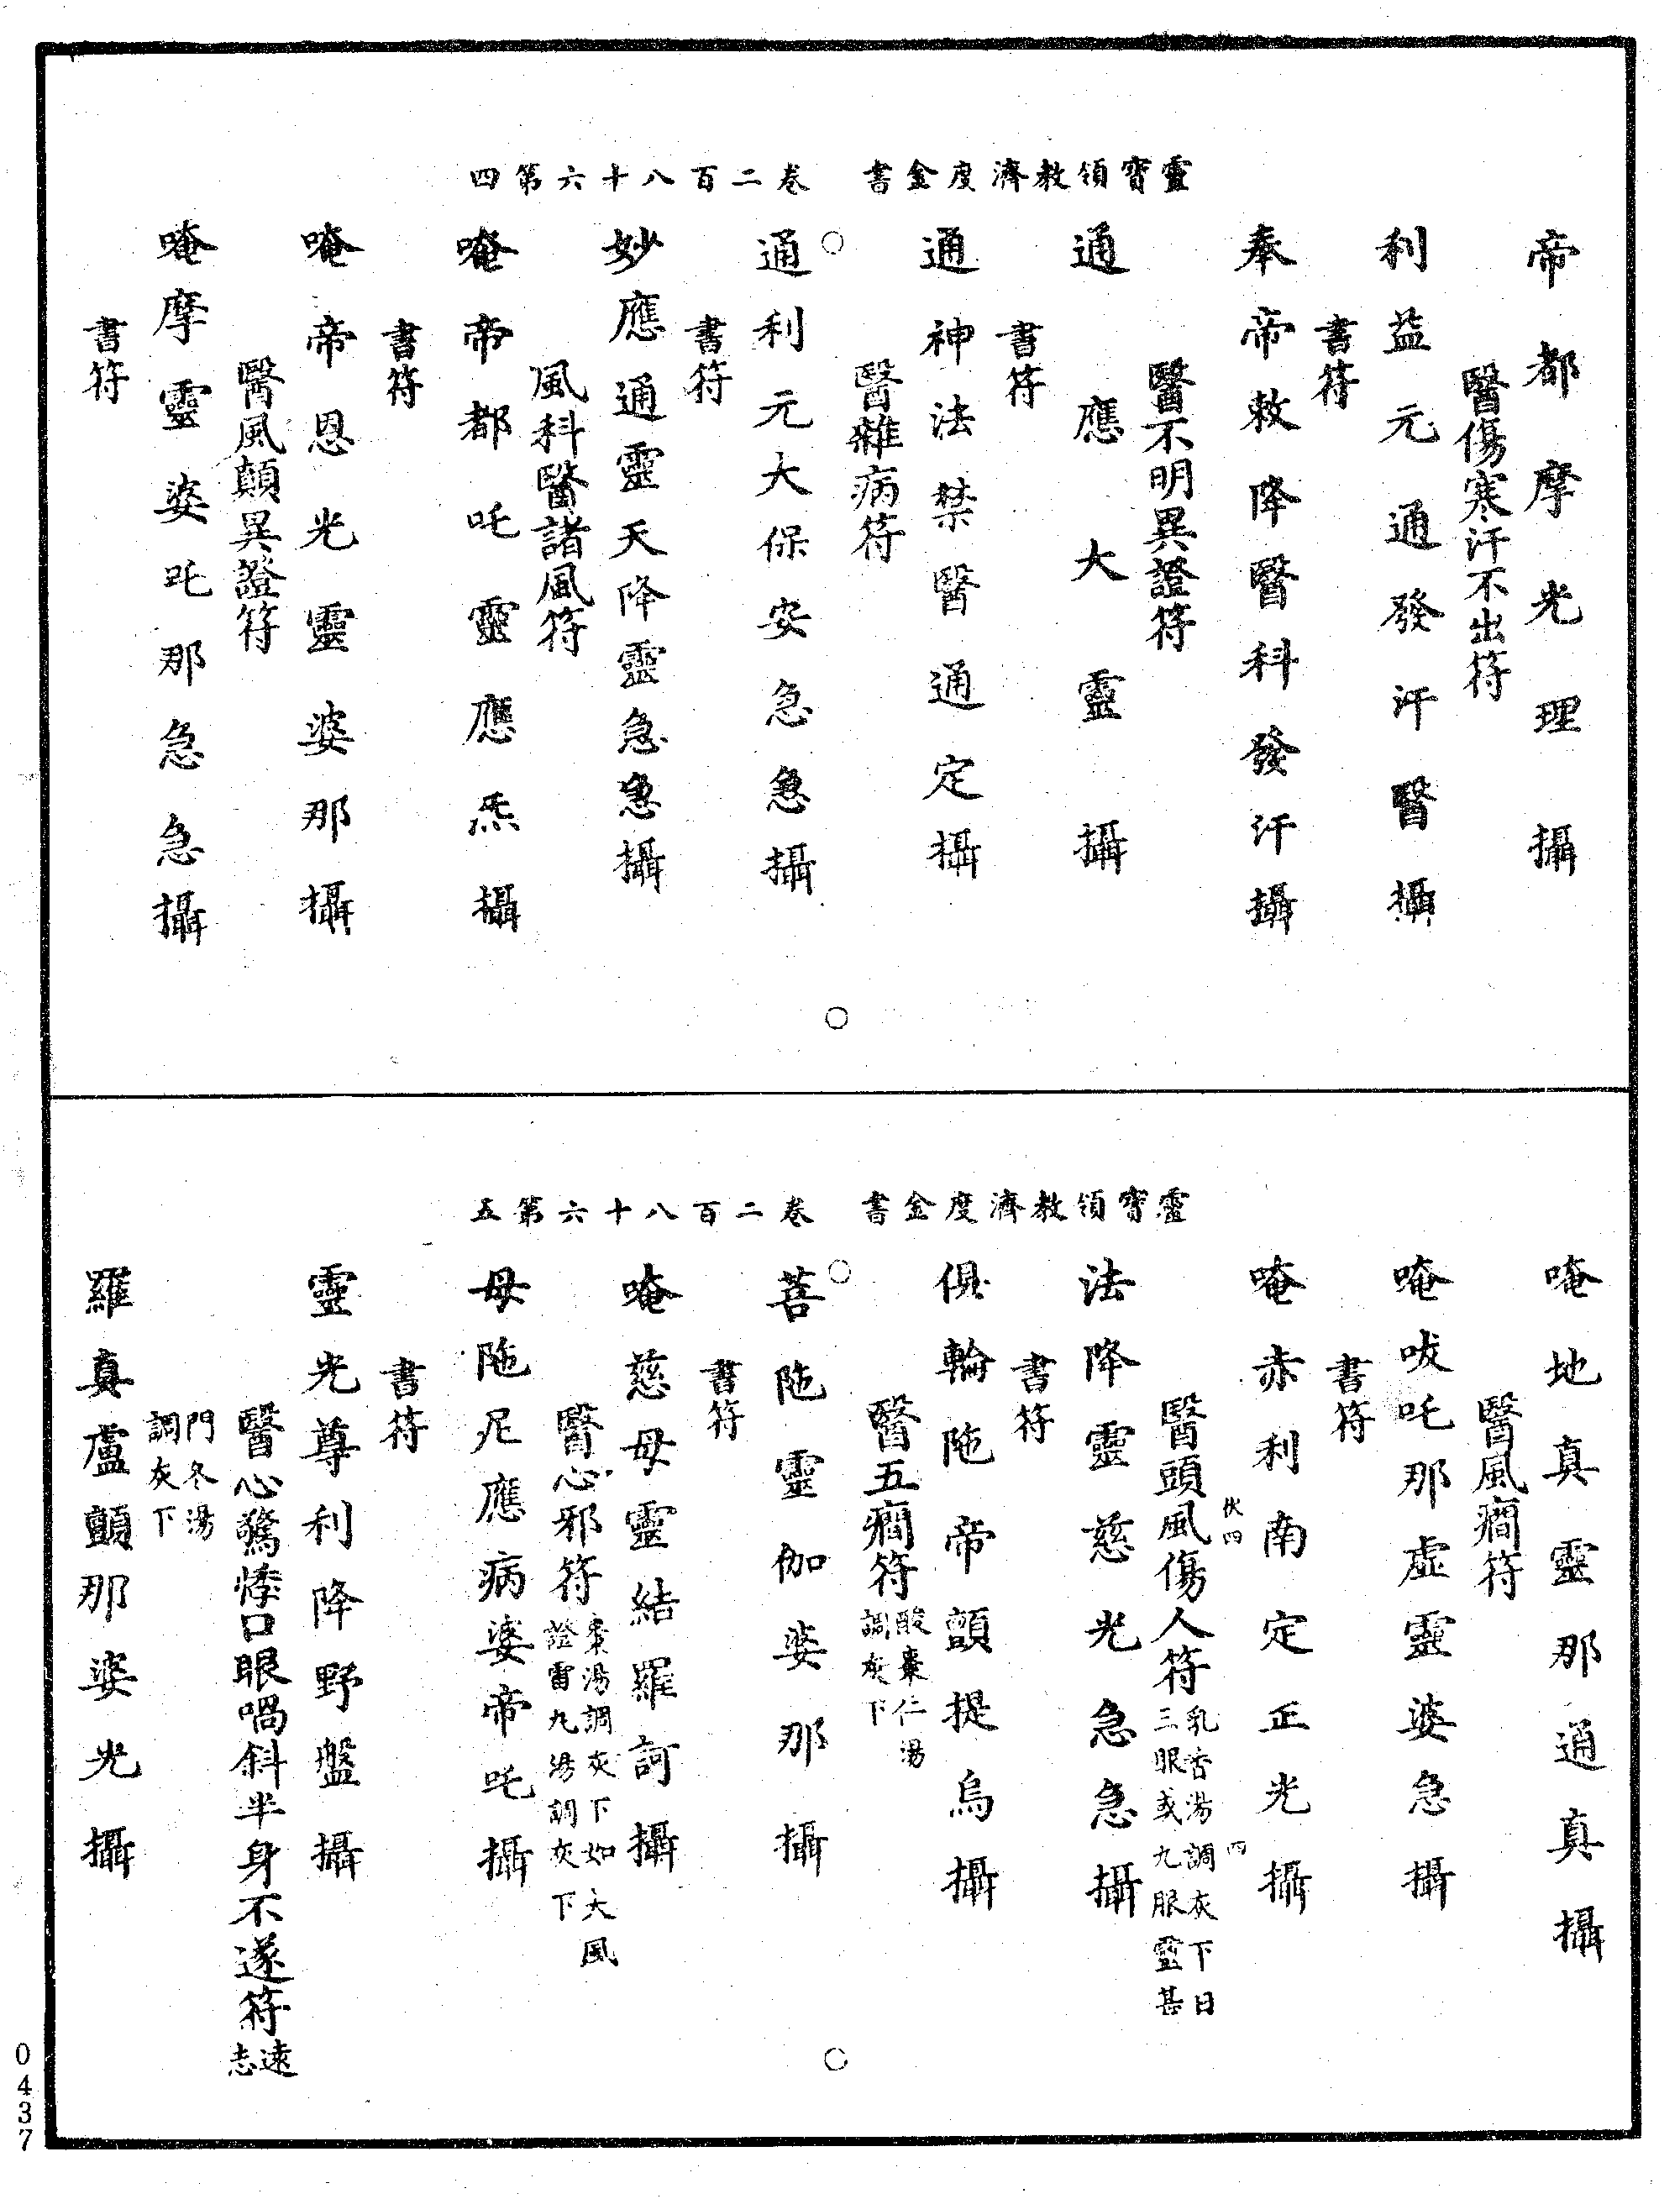 靈寶領教濟度金書　卷二百八十六第四
帝都摩光理攝
醫傷寒汗不出符
利益元通發汗醫攝
書符
奉帝敕降醫科發汗攝
醫不明異證符
通應大靈攝
書符
通神法禁醫通定攝
醫雜病符
通利元大保安急急攝
書符
妙應通靈天降靈急急攝
風科醫諸風符
唵帝都吒靈應炁攝
書符
唵帝恩光靈婆那攝
醫風顛異證符
唵摩靈婆吒那急急攝
書符
靈寶領教濟度金書　卷二百八十六第五
唵地真靈那通真攝
醫風癇符
唵吠吒那虛靈婆急攝
書符
唵赤利南定正光攝
伏四　四
醫頭風傷人符乳香湯調灰下日三服或九服靈甚
法降靈慈光急急攝
書符
俱輪陁帝顫提烏攝
醫五癇符酸棗仁湯調灰下
菩陁靈伽婆那攝
書符
唵慈母靈結羅訶攝
醫心邪符棗湯調灰下如大風證雷九湯調灰下
母陁尼應病婆帝吒攝
書符
靈光尊利降野盤攝
醫心驚悸口眼喎斜半身不遂符遠志
門冬湯調灰下
羅真盧顫那婆光攝
0437